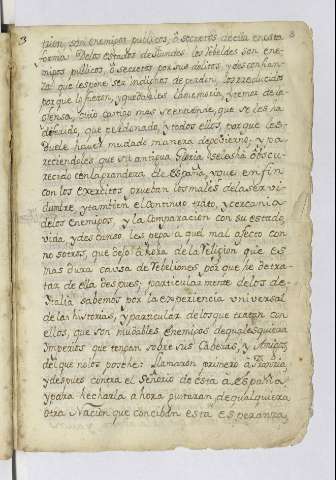 3
quien, son enemigos publicos, ô secretos decita en esta
forma. De los estados de flandes los Rebeldes son ene-
migos publicos, ô secretos por sus delitos, y desconfian-
za que les pone ser indignos de perdon, los reducidos
por que lo fueron, y guardan la memoria, y temor de la
ofensa, cuio castigo mas se entiende, que se les ha
diferido, que perdonado, y todos ellos, por que les
duele haver mudado manera de govierno, y pa-
reciendoles que su antigua Gloria se les ha obscu-
recido con la grandeza de España, y que en fin
con los exercitos prueban los males de la servi-
dumbre, y tambien el continuo trato, y cercania
de los enemigos, y la comparacion con su estado,
vida, y descanso les pega el mal afecto con
nosotros, que dejo á hora de la Religion que es
mas dura causa de Rebeliones por que he de tra-
tar de ella despues, particularmente de los de
Italia sabemos por la experiencia universal
de las historias, y particular de los que tratan con
ellos, que son mudables enemigos de qualesquiera
Imperios que tengan sobre sus Cabezas, y Amigos
del que no los posehe: llamaron primero â Francia
y despues contra el Señorio de esta â España
y para hecharla a hora juntaran de qualquiera
otra Nacion que conciban esta esperanza,